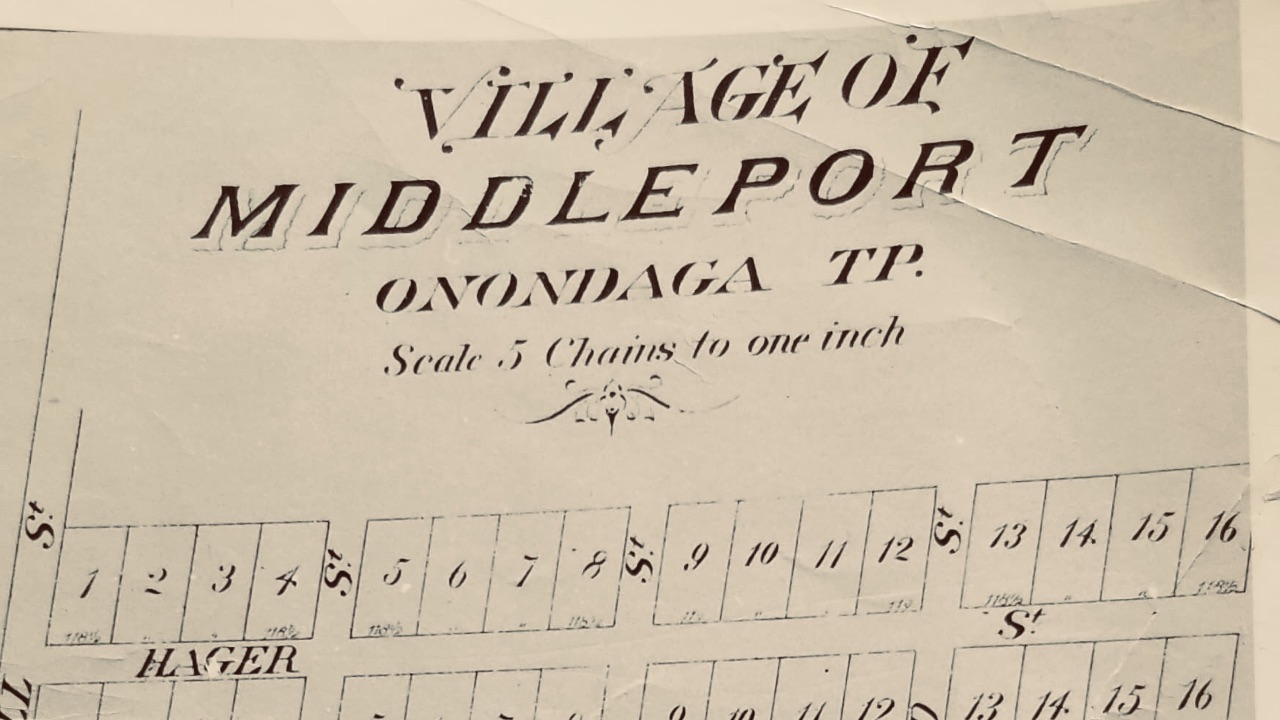 VILLAGE OF
MIDDLEPORT
ONONDAGA TP.
Scale 5 Chains to one inch
St St St St
1 2 3 4 5 6 7 8 9 10 11 12 13 14 15 16
HAGER St
9 10 11 12 13 14 15 16